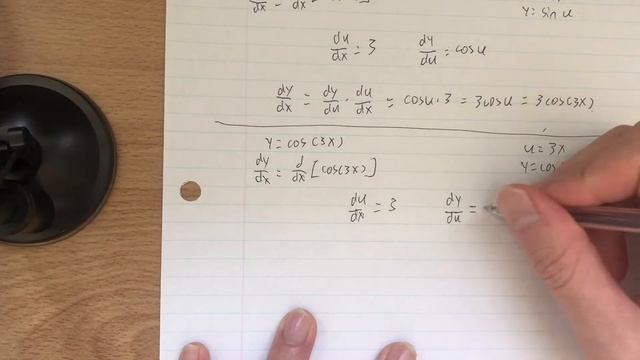 y = sin u
du/dx = 3 dy/du = cos u
dy/dx = dy/du · du/dx = cos u · 3 = 3 cos u = 3 cos(3x)
y = cos(3x) u = 3x
dy/dx = d/dx [cos(3x)] y = cos
du/dx = 3 dy/du =